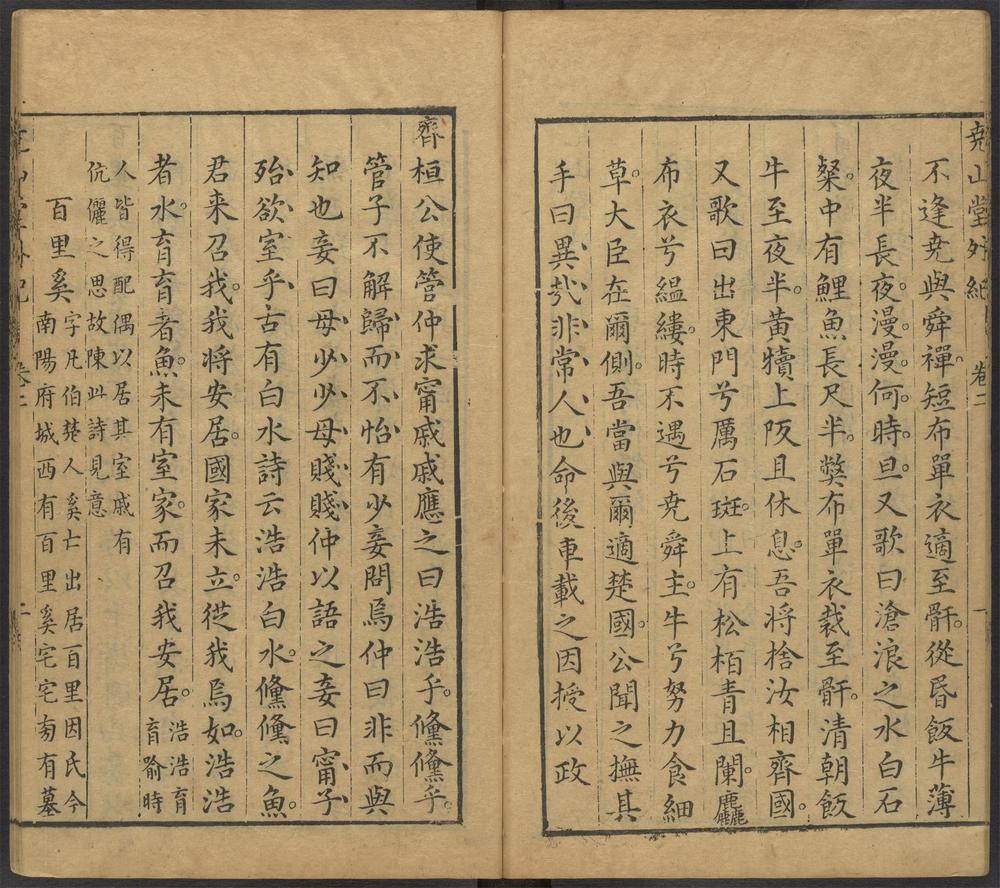 堯山堂外紀 卷二 一
不逢堯與舜禪短布單衣適至骭從昏飯牛薄
夜半長夜漫漫何時旦又歌曰滄浪之水白石
粲中有鯉魚長尺半獘布單衣裁至骭清朝飯
牛至夜半黃犢上阪且休息吾將捨汝相齊國
又歌曰出東門兮厲石斑上有松栢青且闌麤
布衣兮縕縷時不遇兮堯舜主牛兮努力食細
草大臣在爾側吾當與爾適楚國公聞之撫其
手曰異哉非常人也命後車載之因授以政
齊桓公使管仲求甯戚戚應之曰浩浩乎儵儵乎
管子不解歸而不怡有少妾問焉仲曰非而與
知也妾曰毋少少毋賤賤仲以語之妾曰甯子
殆欲室乎古有白水詩云浩浩白水儵儵之魚
君來召我我將安居國家未立從我焉如浩浩
者水育育者魚未有室家而召我安居浩浩育
育喻時
人皆得配偶以居其室戚有
伉儷之思故陳此詩見意
百里奚字凡伯楚人奚亡出居百里因氏今
南陽府城西有百里奚宅宅旁有墓
卷二 二